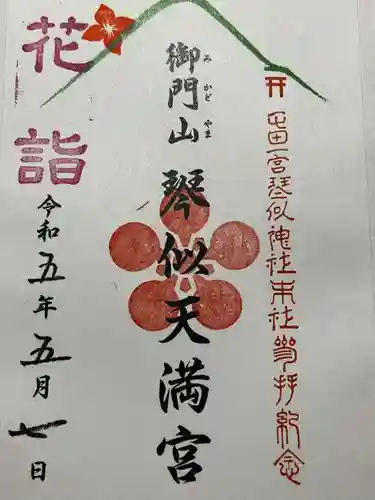 冨田一宮琴似神社末社参拝紀念
御門山 琴似天満宮
みかどやま
花詣
令和五年五月七日